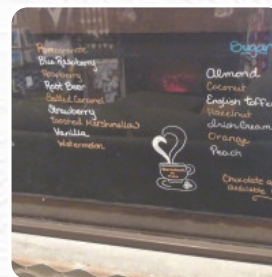 Pomegranate
Blue Raspberry
Raspberry
Root Beer
Salted Caramel
Strawberry
Toasted Marshmallow
Vanilla
Watermelon
Sugar
Almond
Coconut
English Toffe
Hazelnut
Irish Cream
Orange
Peach
Chocolate a
available